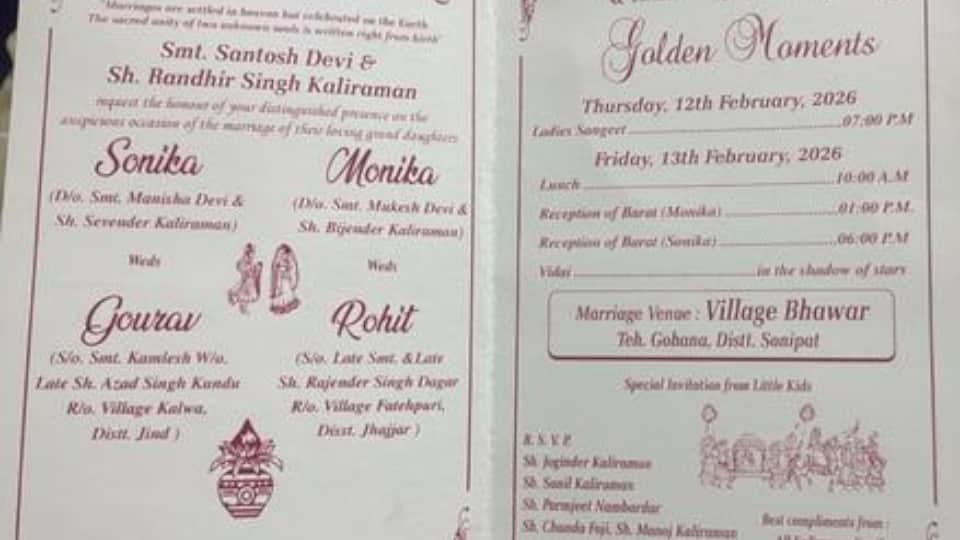 "Marriages are settled in heaven but celebrated on the Earth
The sacred unity of two unknown souls is written right from birth"
Smt. Santosh Devi &
Sh. Randhir Singh Kaliraman
request the honour of your distinguished presence on the
auspicious occasion of the marriage of their loving grand daughters
Sonika
(D/o. Smt. Manisha Devi &
Sh. Sevender Kaliraman)
Weds
Gourav
(S/o. Smt. Kamlesh W/o.
Late Sh. Azad Singh Kundu
R/o. Village Kalwa,
Distt. Jind )
Monika
(D/o. Smt. Mukesh Devi &
Sh. Bijender Kaliraman)
Weds
Rohit
(S/o. Late Smt. &Late
Sh. Rajender Singh Dagar
R/o. Village Fatehpuri,
Disst. Jhajjar )
Golden Moments
Thursday, 12th February, 2026
Ladies Sangeet 07:00 P.M
Friday, 13th February, 2026
Lunch 10:00 A.M
Reception of Barat (Monika) 01:00 P.M.
Reception of Barat (Sonika) 06:00 P.M
Vidai in the shadow of stars
Marriage Venue : Village Bhawar
Teh. Gohana, Distt. Sonipat
Special Invitation from Little Kids
R. S. V. P.
Sh. Joginder Kaliraman
Sh. Sunil Kaliraman
Sh. Parmjeet Nambardar
Sh. Chanda Fuji, Sh. Manoj Kaliraman
Best compliments from :